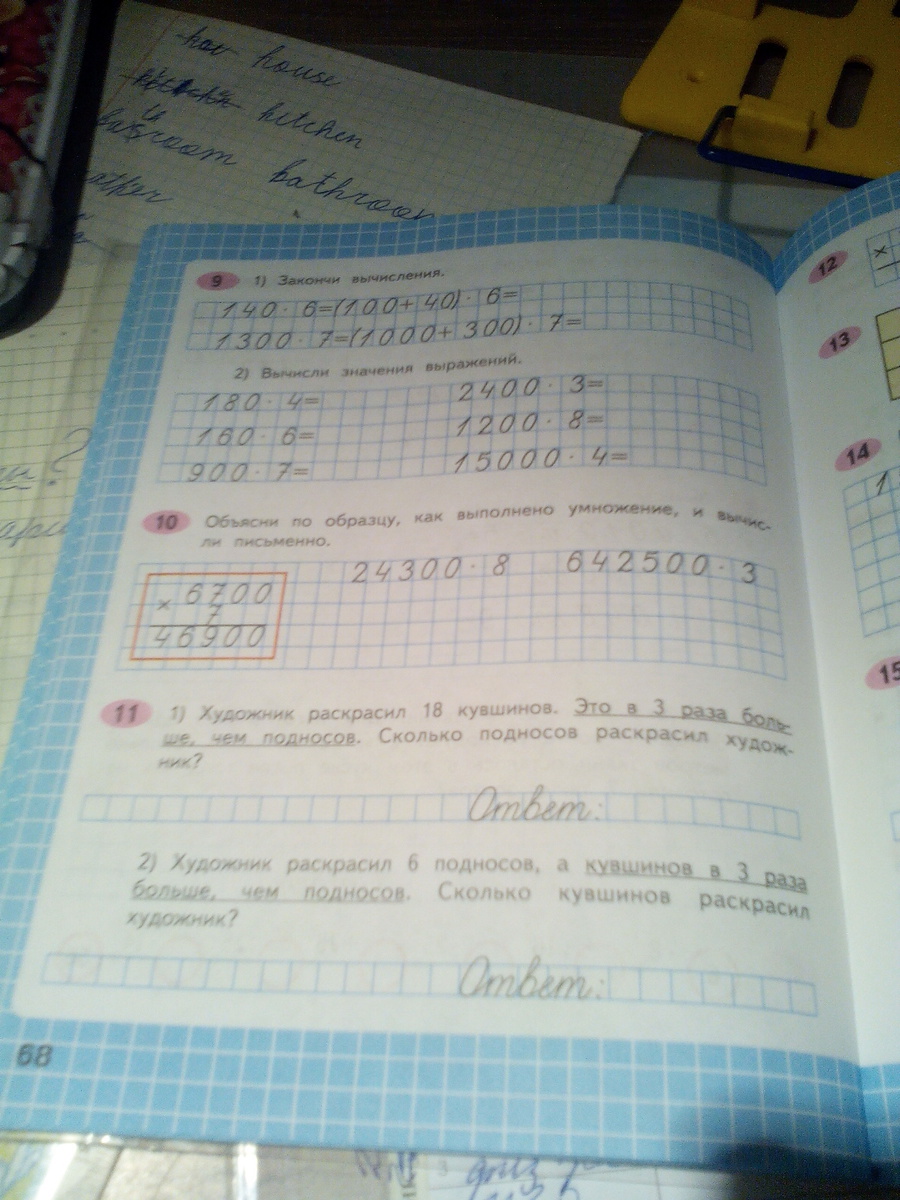 house
kitchen
bathroom
9 1) Закончи вычисления.
140 · 6=(100+40) · 6=
1300 · 7=(1000+300) · 7=
2) Вычисли значения выражений.
180 · 4= 2400 · 3=
160 · 6= 1200 · 8=
900 · 7= 15000 · 4=
10 Объясни по образцу, как выполнено умножение, и вычис-
ли письменно.
24300 · 8 642500 · 3
× 6700
7
46900
11 1) Художник раскрасил 18 кувшинов. Это в 3 раза боль-
ше, чем подносов. Сколько подносов раскрасил худож-
ник?
Ответ:
2) Художник раскрасил 6 подносов, а кувшинов в 3 раза
больше, чем подносов. Сколько кувшинов раскрасил
художник?
Ответ:
68
12 ×
13
14
1
15